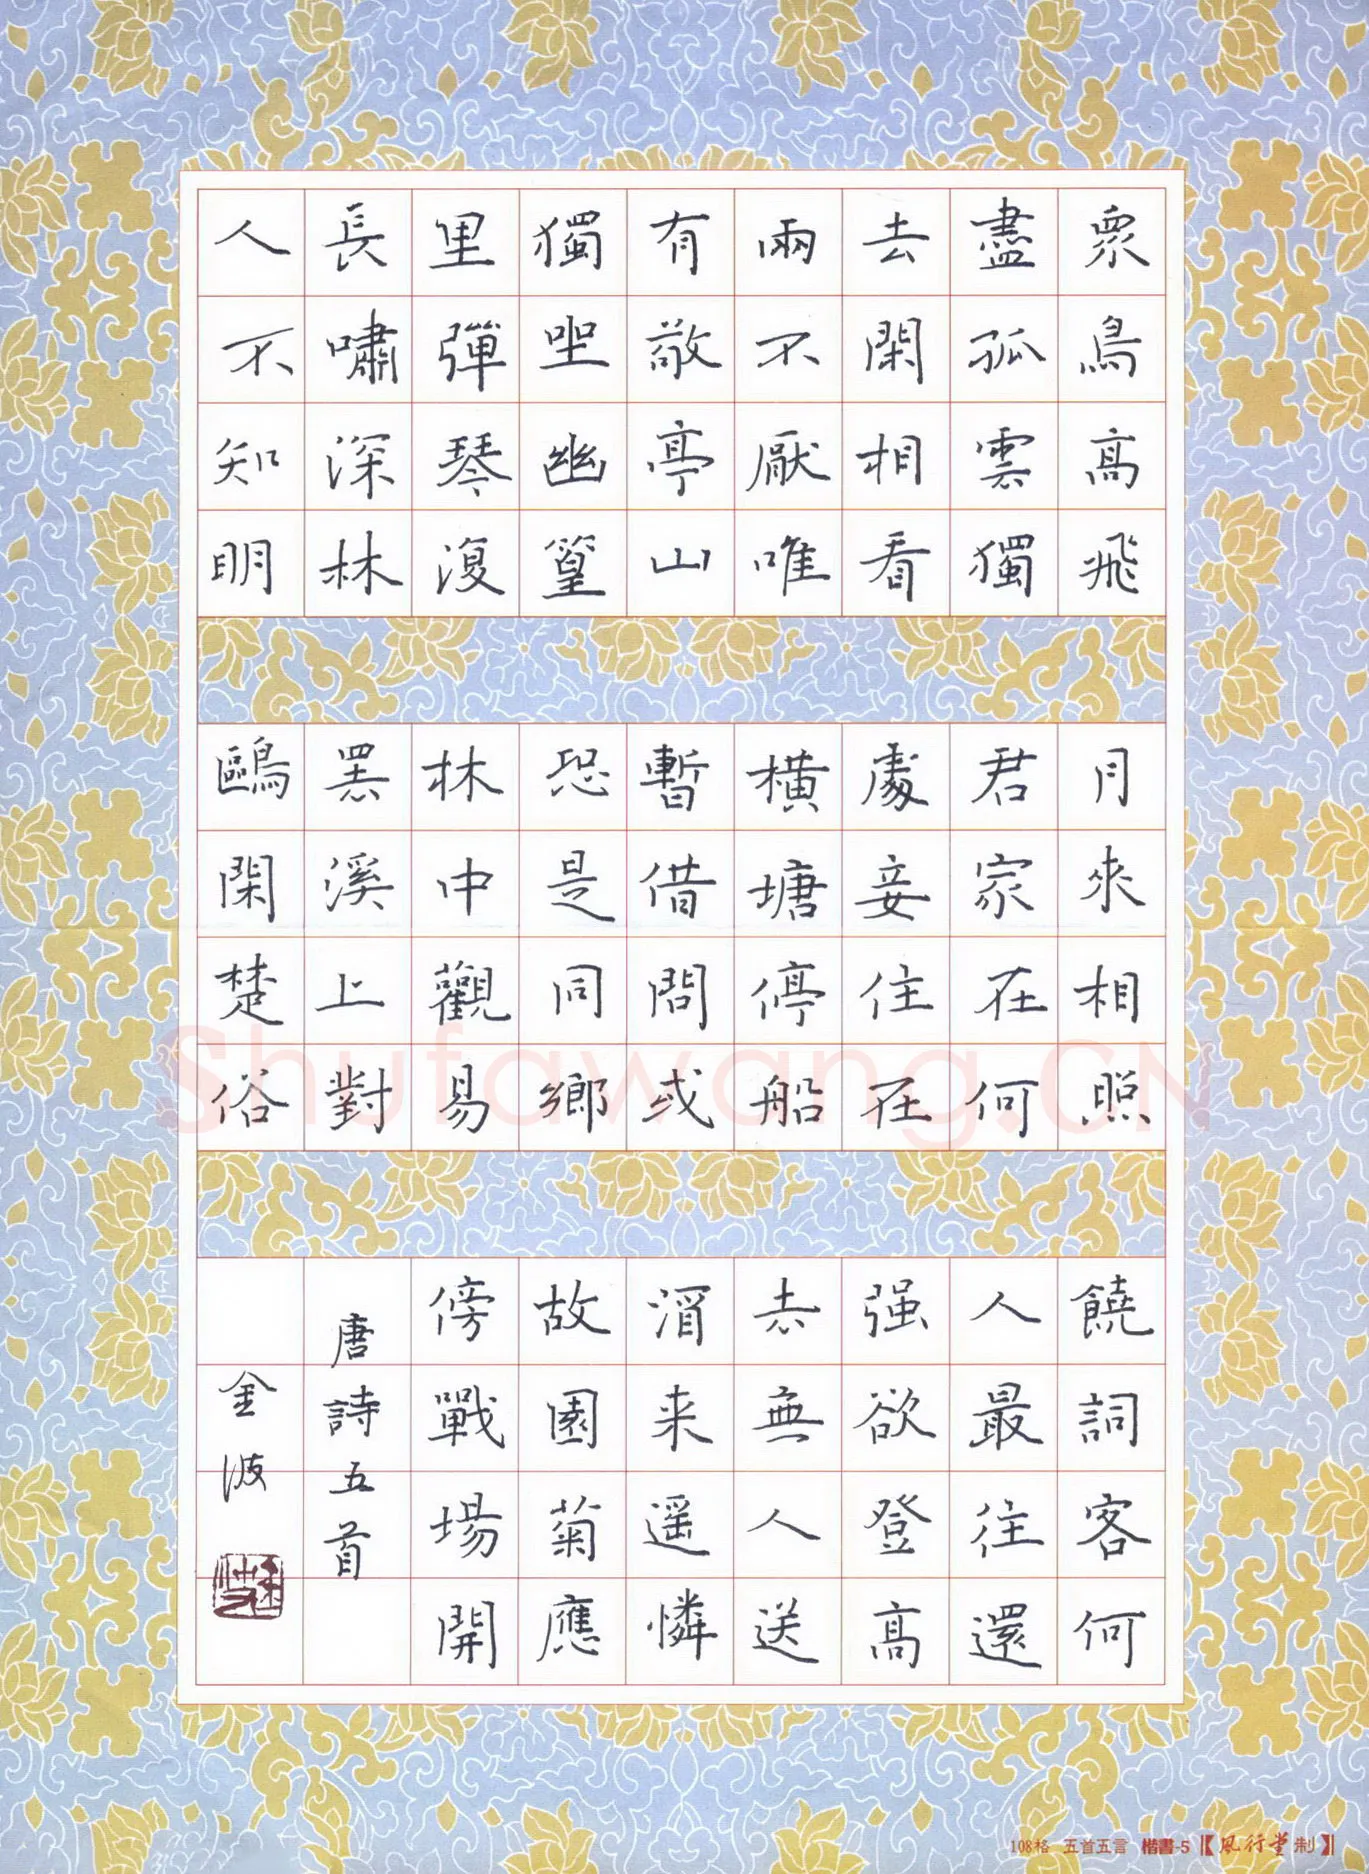 衆鳥高飛
盡孤雲獨
去閑相看
兩不厭唯
有敬亭山
獨坐幽篁
里彈琴復
長嘯深林
人不知明
月來相照
君家在何
處妾住在
橫塘停船
暫借問或
恐是同鄉
林中觀易
罷溪上對
鷗閑楚俗
饒詞客何
人最往還
强欲登高
去無人送
酒来遥憐
故園菊應
傍戰場開
唐詩五首
金波
Shufawang.CN
108格 五首五言 楷書-5【風行堂制】